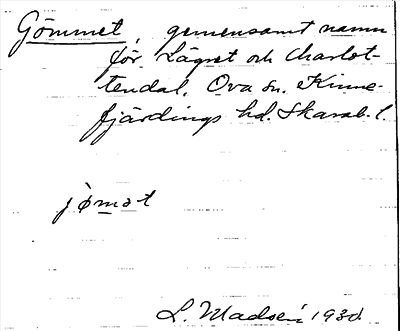 Gömmet, gemensamt namn
för Lägret och Charlot-
tendal. Ova sn. Kinne-
fjärdings hd. Skarab. l.
jømət
L. Madsén 1930.